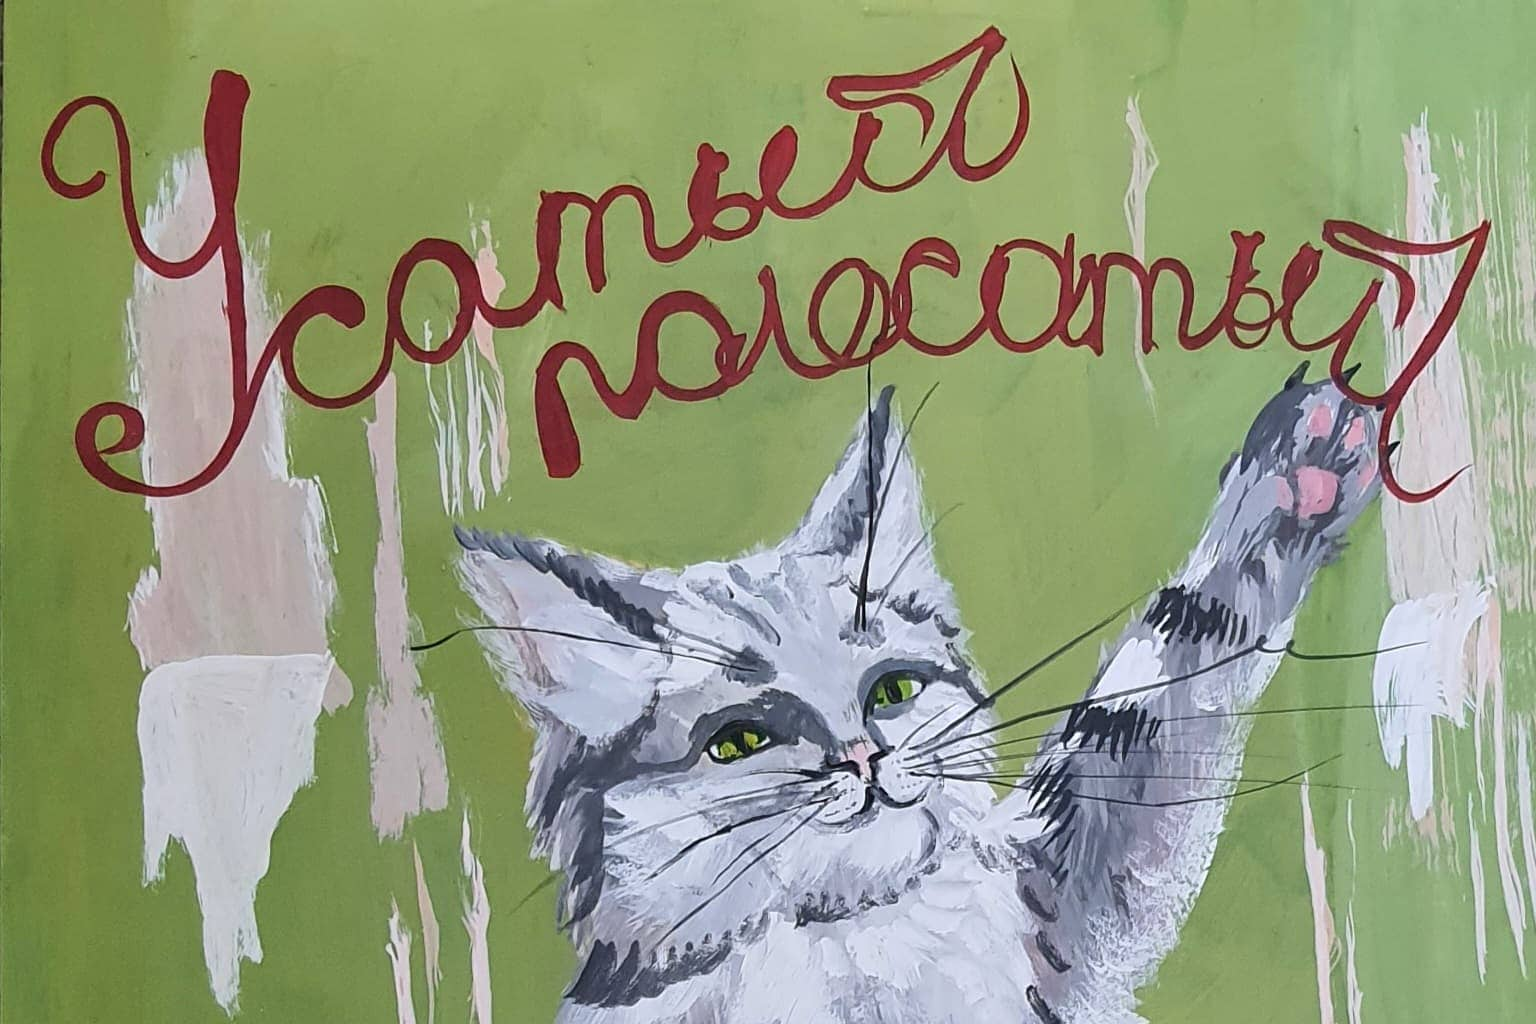 Усатый
полосатый